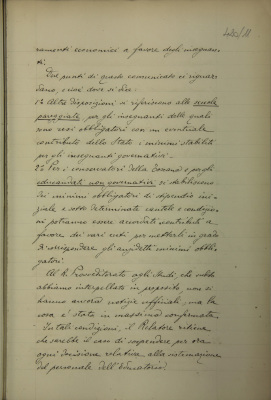 ramenti economici a favore degli insegnan-
ti.
Due punti di questo comunicato ci riguar-
dano, e cioè dove si dice:
1° Altre disposizioni si riferiscono alle scuole
pareggiate, per gli insegnanti delle quali
sono resi obbligatori con un eventuale
contributo dello Stato i minimi stabiliti
per gli insegnanti governativi.
2° Per i conservatori della Toscana e per gli
educandati non governativi si stabiliscono
dei minimi obbligatori di stipendio ini-
ziale e sotto determinate cautele e condizio-
ni potranno essere accordati contributi a
favore dei vari enti per metterli in grado
di corrispondere gli anzidetti minimi obbli-
gatori.
Il R. Provveditorato agli Studi, che subito
abbiamo interpellato in proposito non ci
hanno ancora notizie ufficiali, ma la
cosa è stata in massima confermata.
In tali condizioni, il Relatore ritiene
che sarebbe il caso di sospendere per ora
ogni decisione relativa alla sistemazione
del personale dell'Educatorio.